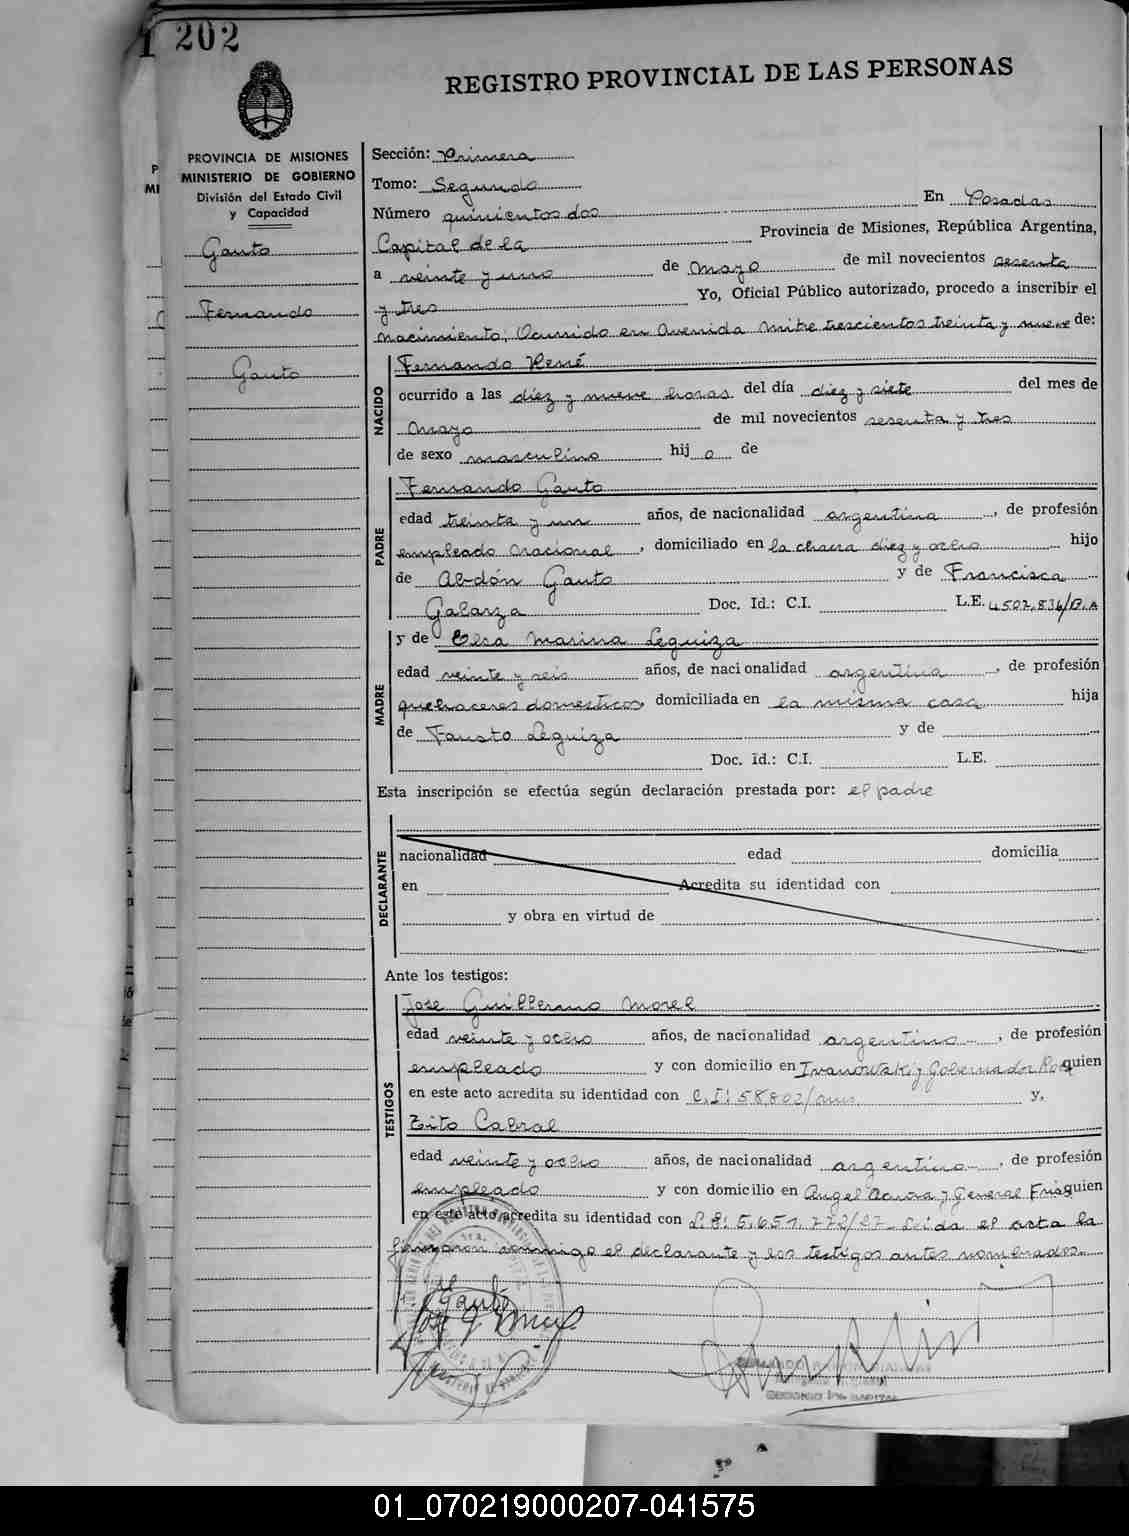 202
REGISTRO PROVINCIAL DE LAS PERSONAS
PROVINCIA DE MISIONES
MINISTERIO DE GOBIERNO
División del Estado Civil
y Capacidad
Gauto
Fernando
Gauto
Sección: Primera
Tomo: Segundo
Número quinientos dos En Posadas
Capital de la Provincia de Misiones, República Argentina,
a veinte y uno de Mayo de mil novecientos sesenta
y tres Yo, Oficial Público autorizado, procedo a inscribir el
nacimiento; Ocurrido en Avenida Mitre trescientos treinta y nueve de:
NACIDO
Fernando René
ocurrido a las diez y nueve horas del día diez y siete del mes de
Mayo de mil novecientos sesenta y tres
de sexo masculino hij o de
PADRE
Fernando Gauto
edad treinta y un años, de nacionalidad argentina, de profesión
empleado nacional, domiciliado en la chacra diez y ocho hijo
de Abdón Gauto y de Francisca
Galarza Doc. Id.: C.I. L.E. 4507.834/B.A
MADRE
y de Elsa Marina Leguiza
edad veinte y seis años, de nacionalidad argentina, de profesión
quehaceres domesticos, domiciliada en la misma casa hija
de Fausto Leguiza y de
Doc. Id.: C.I. L.E.
Esta inscripción se efectúa según declaración prestada por: el padre
DECLARANTE
nacionalidad edad domicilia
en Acredita su identidad con
y obra en virtud de
Ante los testigos:
TESTIGOS
José Guillermo Morel
edad veinte y ocho años, de nacionalidad argentino, de profesión
empleado y con domicilio en Ivanowski y Gobernador Roca quien
en este acto acredita su identidad con C.I: 58.802/ y,
Tito Cabral
edad veinte y ocho años, de nacionalidad argentino, de profesión
empleado y con domicilio en Angel Acuña y General Frias quien
en este acto acredita su identidad con L.E: 5.651.772/27. Leida el acta la
firmaron conmigo el declarante y los testigos antes nombrados.
01_070219000207-041575